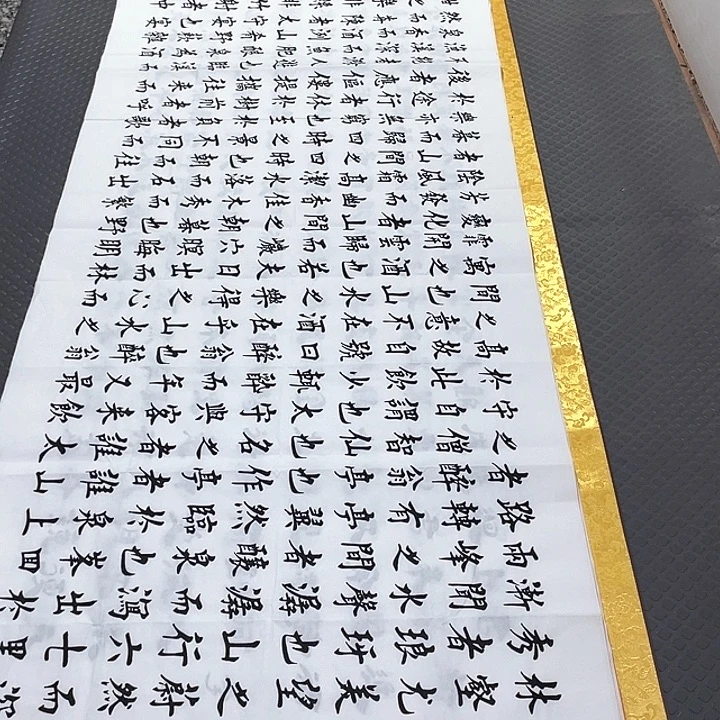 林壑尤美望之蔚然而
秀者琅琊也山行六七里
漸聞水聲潺潺而瀉出於
兩峰之間者釀泉也峯回
路轉有亭翼然臨於泉上
者醉翁亭也作亭者誰山
之僧智仙也名之者誰太
守自謂也太守與客來飲
於此飲少輒醉而年又最
高故自號曰醉翁也醉翁
之意不在酒在乎山水之
間也山水之樂得之心而
寓之酒也若夫日出而林
霏開雲歸而巖穴暝晦明
變化者山間之朝暮也野
芳發而幽香佳木秀而繁
陰風霜高潔水落而石出
者山間之四時也朝而往
暮而歸四時之景不同而
樂亦無窮也至於負者歌
於途行者休於樹前者呼
後者應傴僂提攜往來而